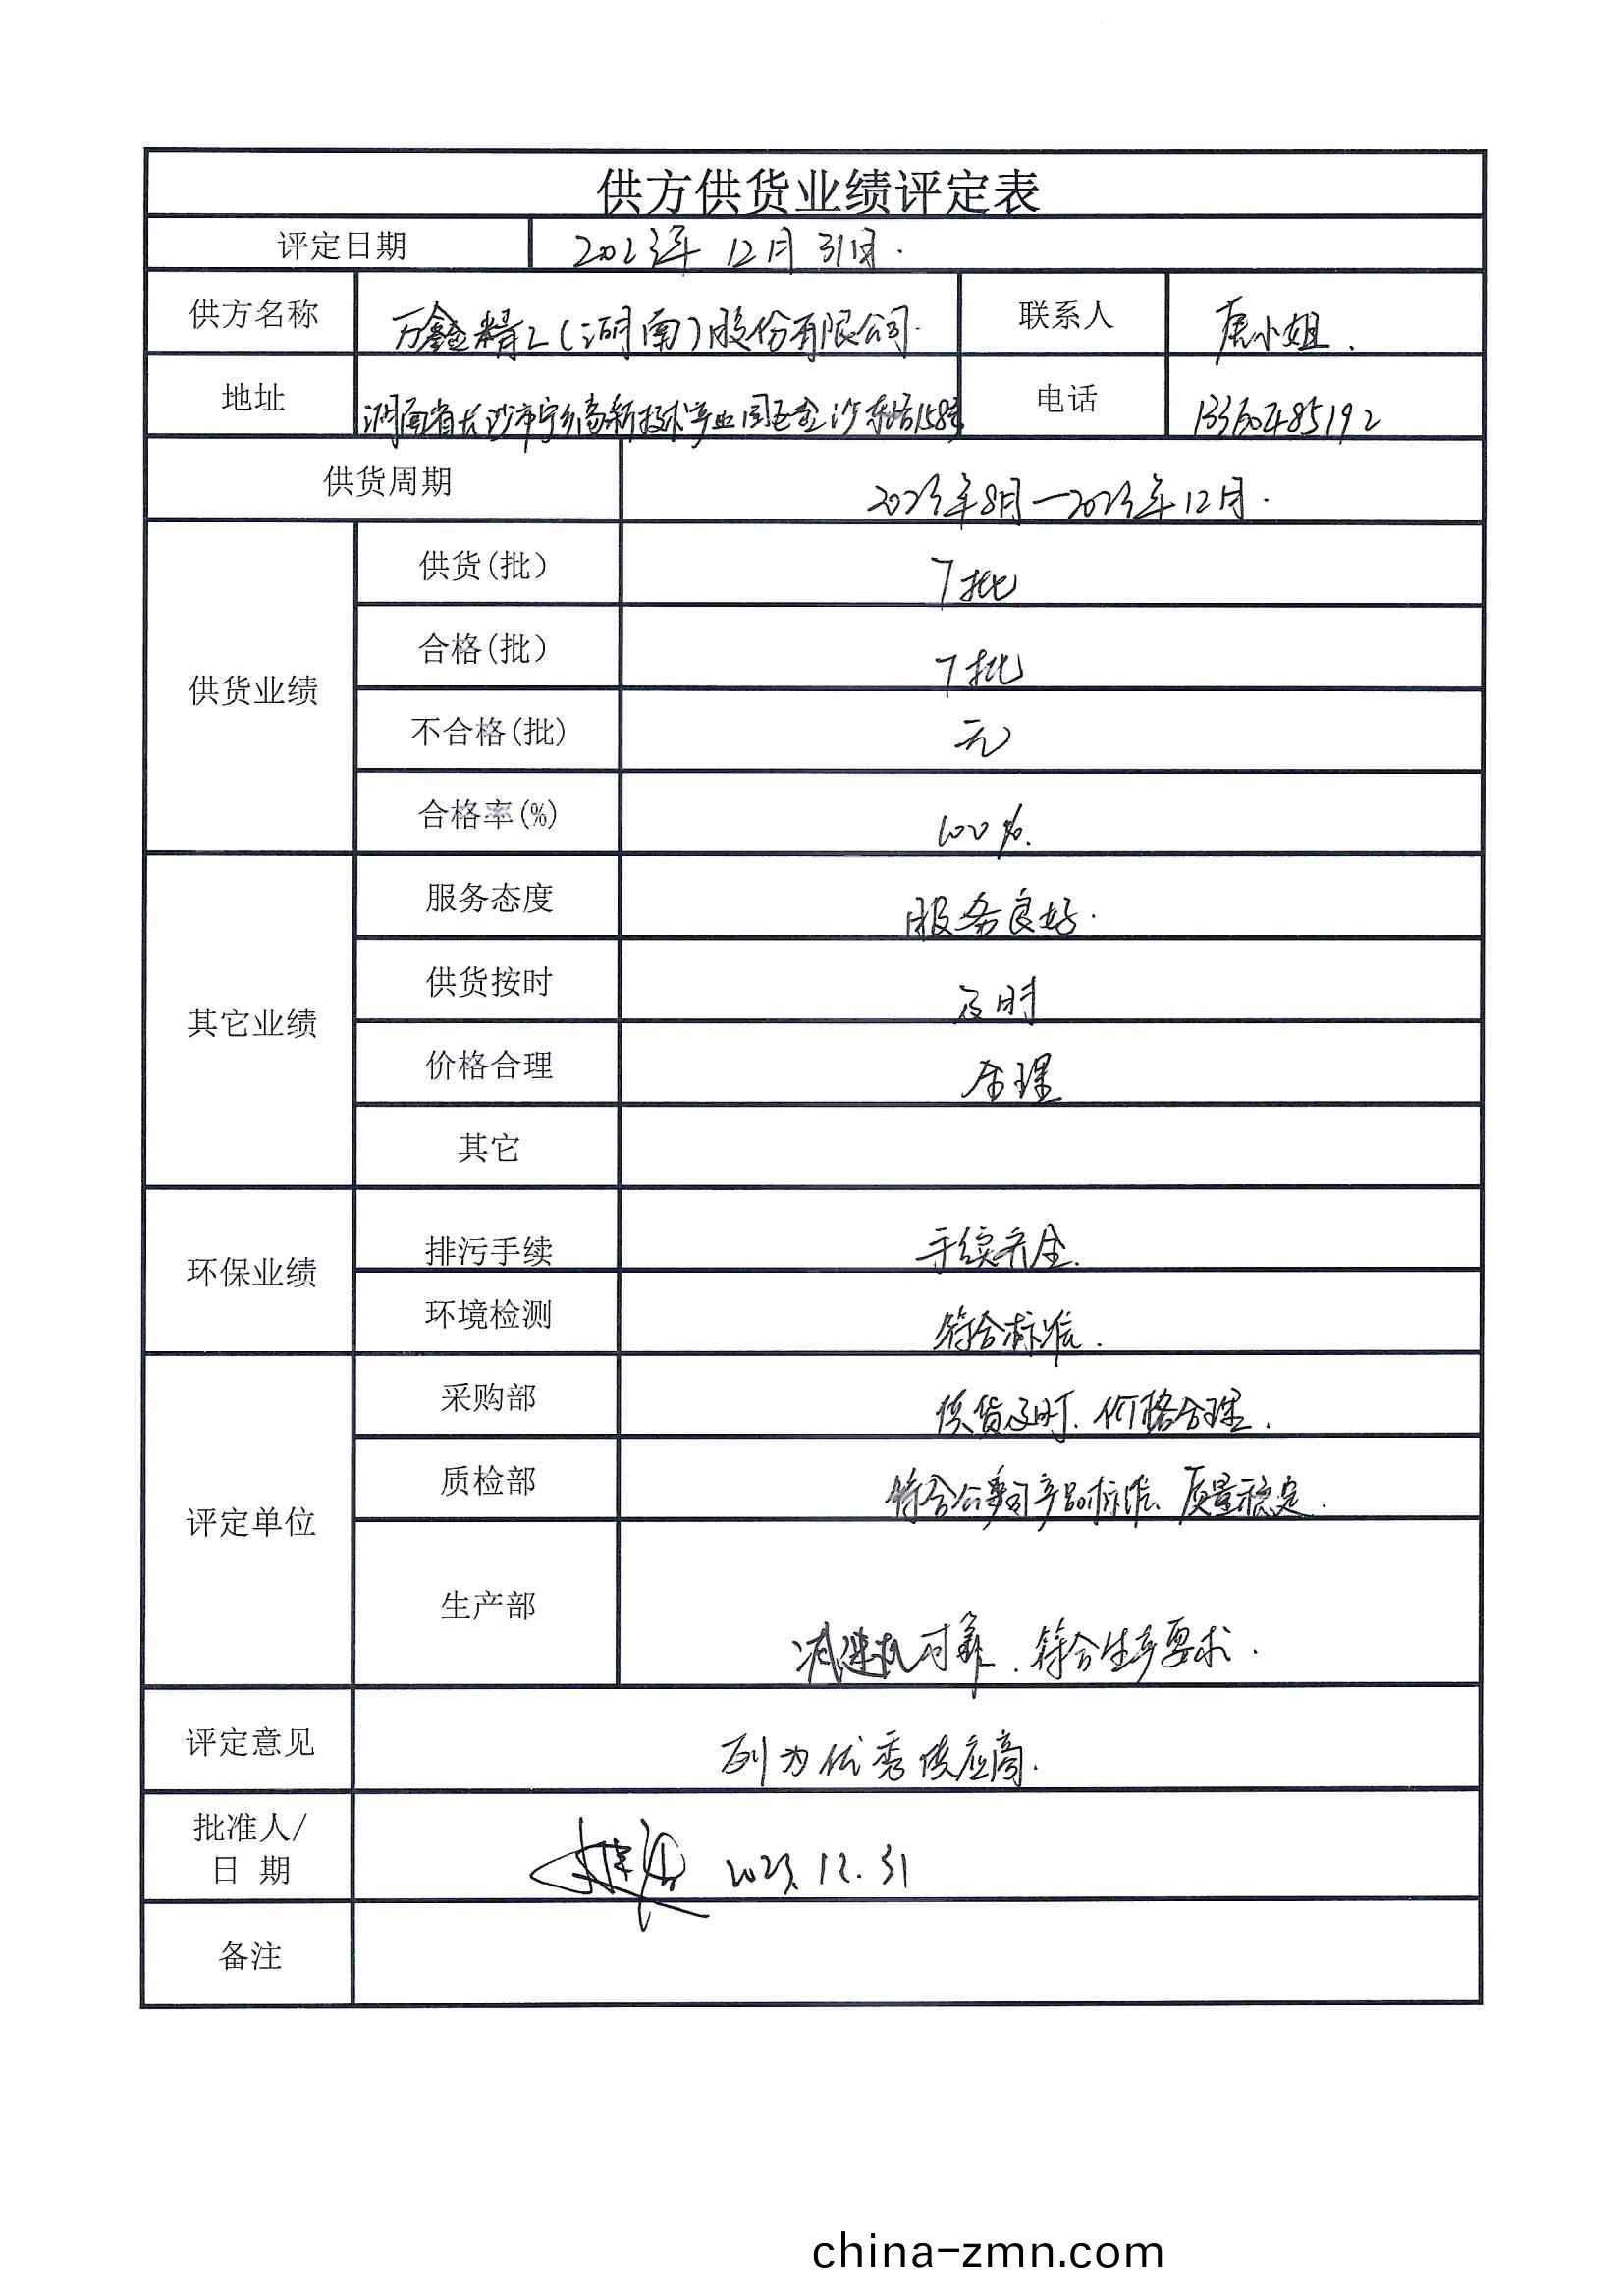 供方供货业绩评定表
评定日期 2023年 12月 31日.
供方名称 万鑫精工(湖南)股份有限公司. 联系人 唐小姐.
地址 湖南省长沙市宁乡高新技术产业园区金沙东路158号 电话 13360485192
供货周期 2023年8月—2023年12月.
供货业绩 供货(批) 7批
合格(批) 7批
不合格(批) 无
合格率(%) 100%.
其它业绩 服务态度 服务良好.
供货按时 及时
价格合理 合理
其它
环保业绩 排污手续 手续齐全.
环境检测 符合标准.
评定单位 采购部 供货及时、价格合理.
质检部 符合公司产品标准、质量稳定.
生产部 减速机可靠、符合生产要求.
评定意见 列为优秀供应商.
批准人/
日 期 2023.12.31
备注
china-zmn.com